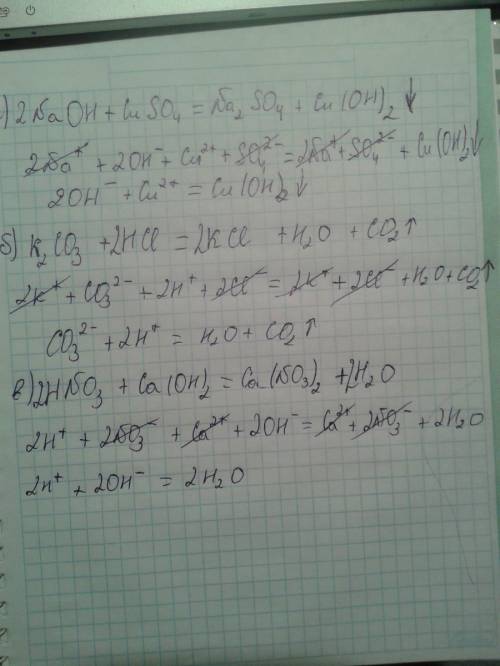 ) 2NaOH + CuSO₄ = Na₂SO₄ + Cu(OH)₂↓
2Na⁺ + 2OH⁻ + Cu²⁺ + SO₄²⁻ = 2Na⁺ + SO₄²⁻ + Cu(OH)₂↓
2OH⁻ + Cu²⁺ = Cu(OH)₂↓
б) K₂CO₃ + 2HCl = 2KCl + H₂O + CO₂↑
2K⁺ + CO₃²⁻ + 2H⁺ + 2Cl⁻ = 2K⁺ + 2Cl⁻ + H₂O + CO₂↑
CO₃²⁻ + 2H⁺ = H₂O + CO₂↑
в) 2HNO₃ + Ca(OH)₂ = Ca(NO₃)₂ + 2H₂O
2H⁺ + 2NO₃⁻ + Ca²⁺ + 2OH⁻ = Ca²⁺ + 2NO₃⁻ + 2H₂O
2H⁺ + 2OH⁻ = 2H₂O